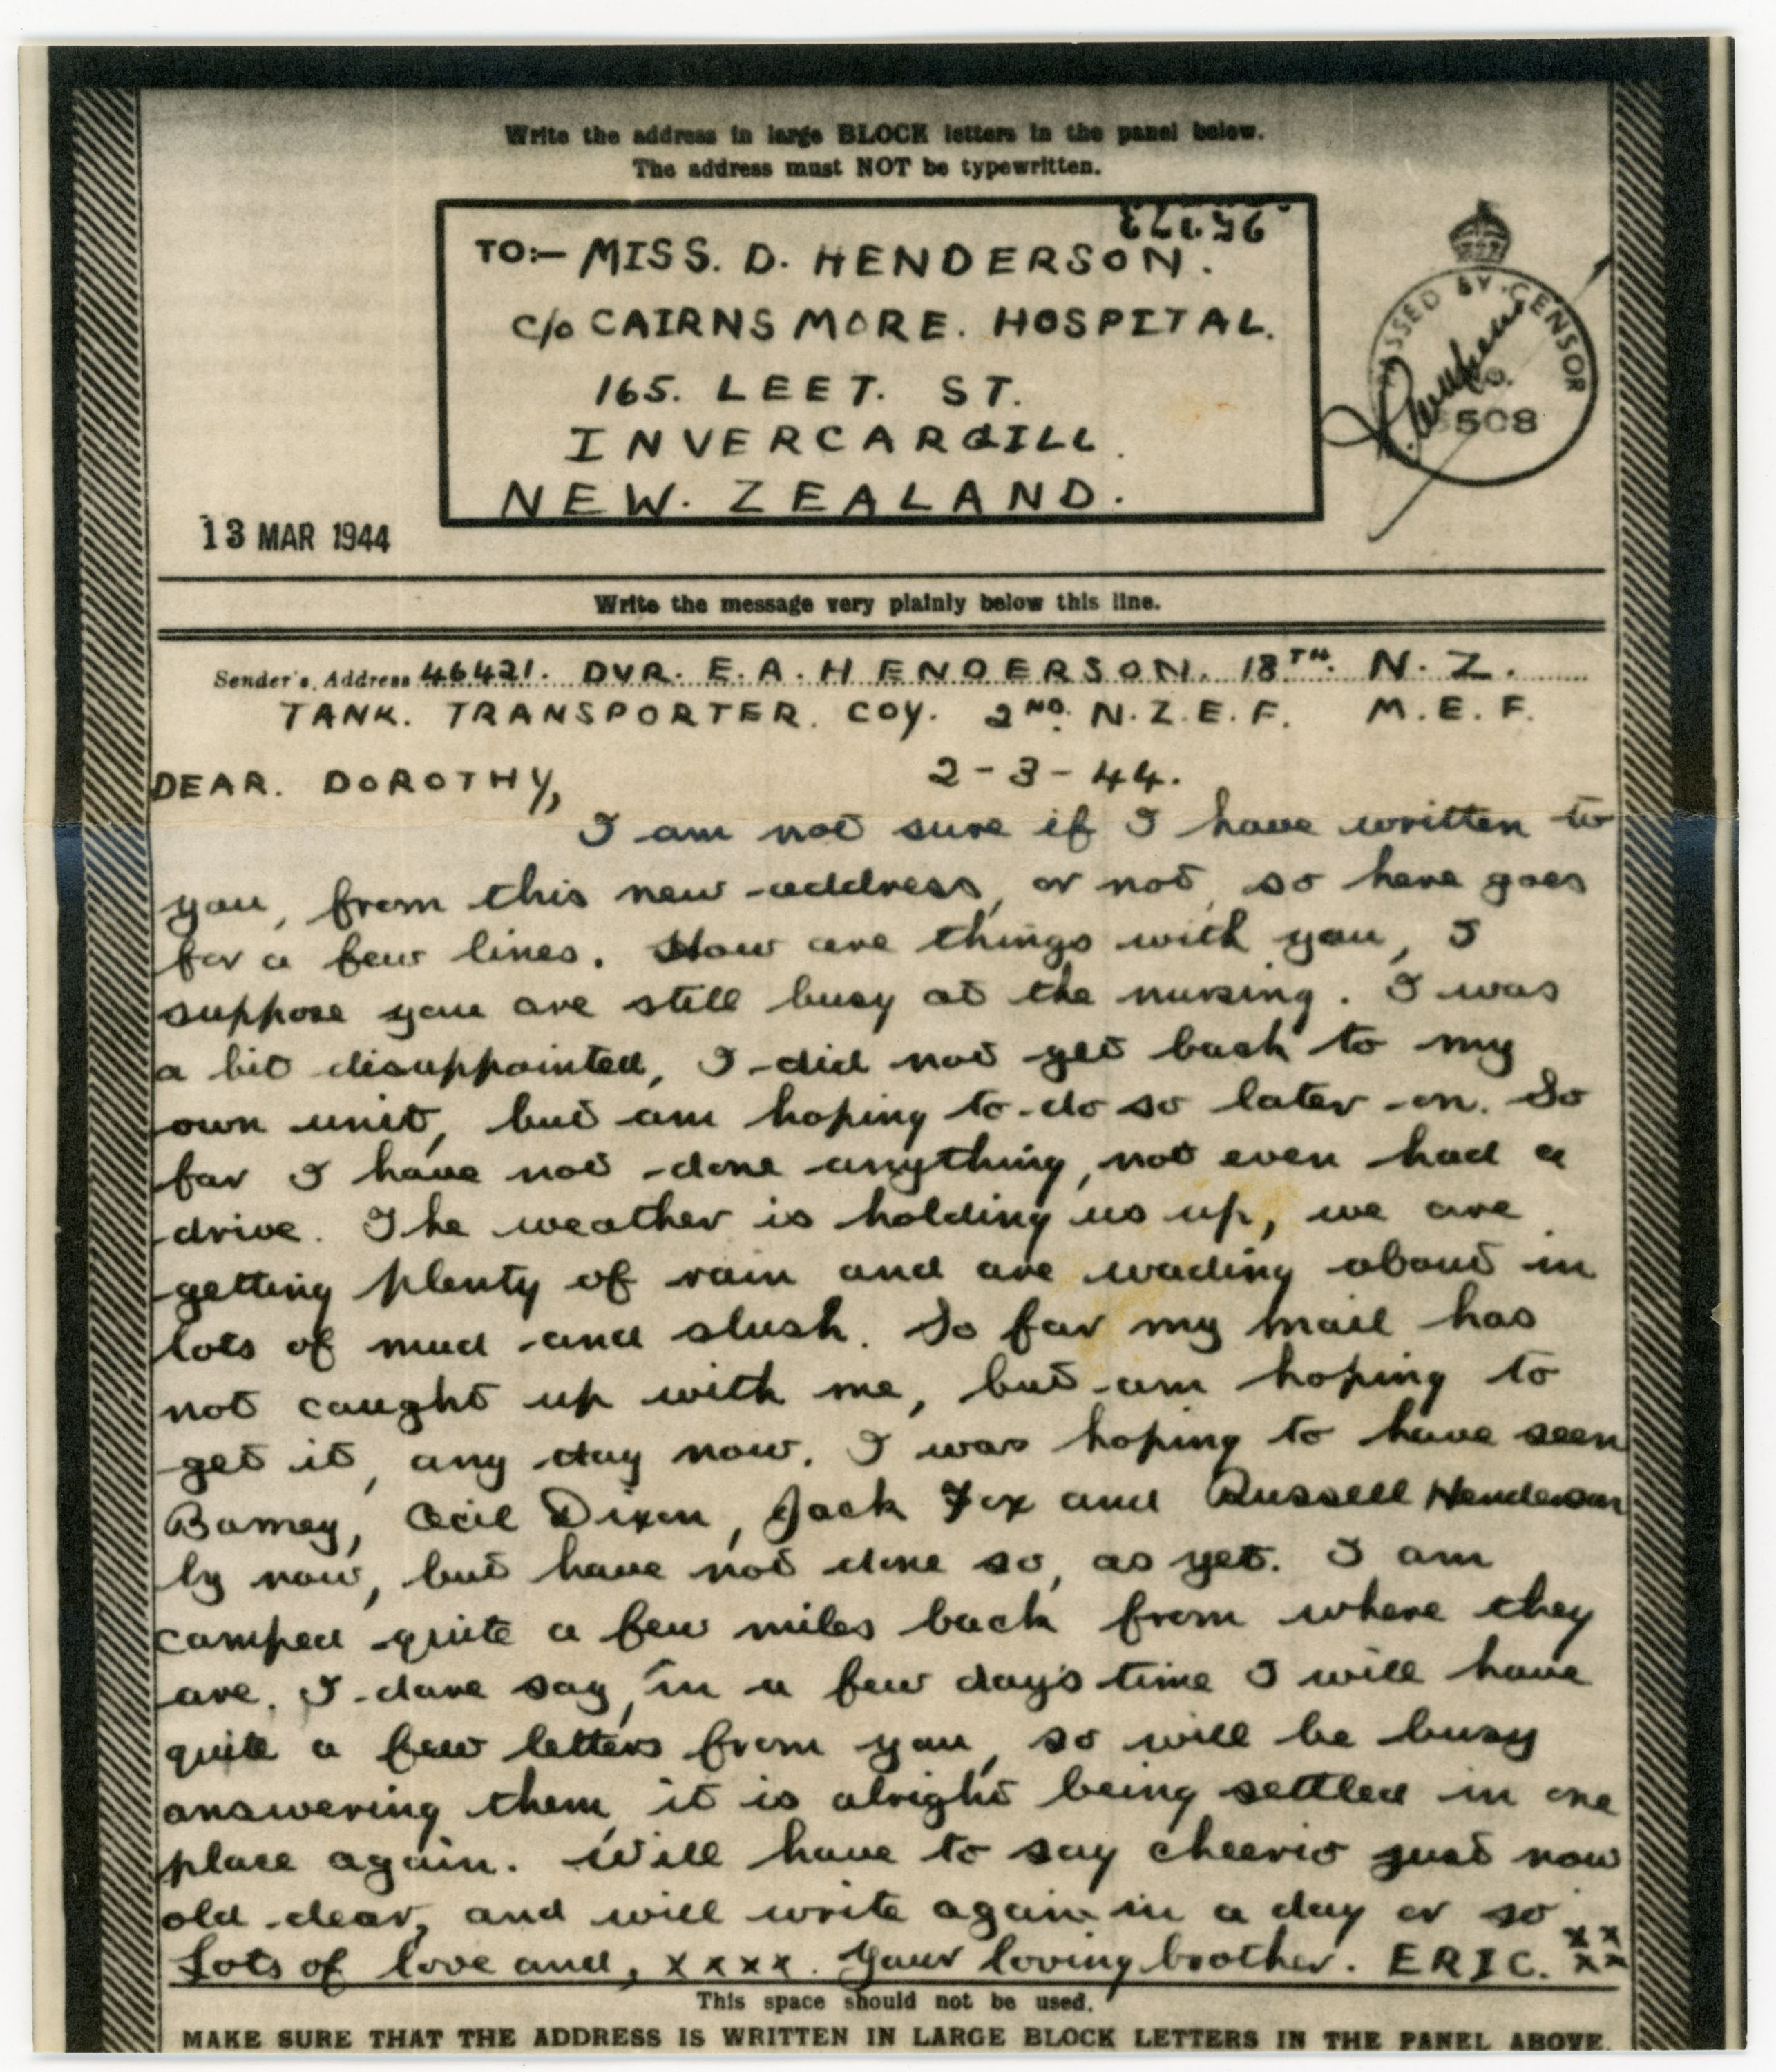 Write the address in large BLOCK letters in the panel below.
The address must NOT be typewritten.
25173
TO:- MISS. D. HENDERSON.
c/o CAIRNSMORE. HOSPITAL.
165. LEET. ST.
INVERCARGILL.
NEW. ZEALAND.
PASSED BY CENSOR
No.
508
13 MAR 1944
Write the message very plainly below this line.
Sender's Address 46421. DVR. E.A. HENDERSON. 18TH. N.Z.
TANK. TRANSPORTER. COY. 2ND. N.Z.E.F. M.E.F.
DEAR. DOROTHY, 2-3-44.
I am not sure if I have written to
you, from this new address, or not, so here goes
for a few lines. How are things with you, I
suppose you are still busy at the nursing. I was
a bit disappointed, I did not get back to my
own unit, but am hoping to do so later on. So
far I have not done anything, not even had a
drive. The weather is holding us up, we are
getting plenty of rain and are wading about in
lots of mud and slush. So far my mail has
not caught up with me, but am hoping to
get it, any day now. I was hoping to have seen
Barney, Cecil Dixon, Jack Fox and Russell Henderson
by now, but have not done so, as yet. I am
camped quite a few miles back from where they
are. I dare say, in a few days time I will have
quite a few letters from you, so will be busy
answering them, it is alright being settled in one
place again. Will have to say cheerio just now
old dear, and will write again in a day or so
Lots of love and, xxxx. Your loving brother. ERIC. xx
xx
This space should not be used.
MAKE SURE THAT THE ADDRESS IS WRITTEN IN LARGE BLOCK LETTERS IN THE PANEL ABOVE.